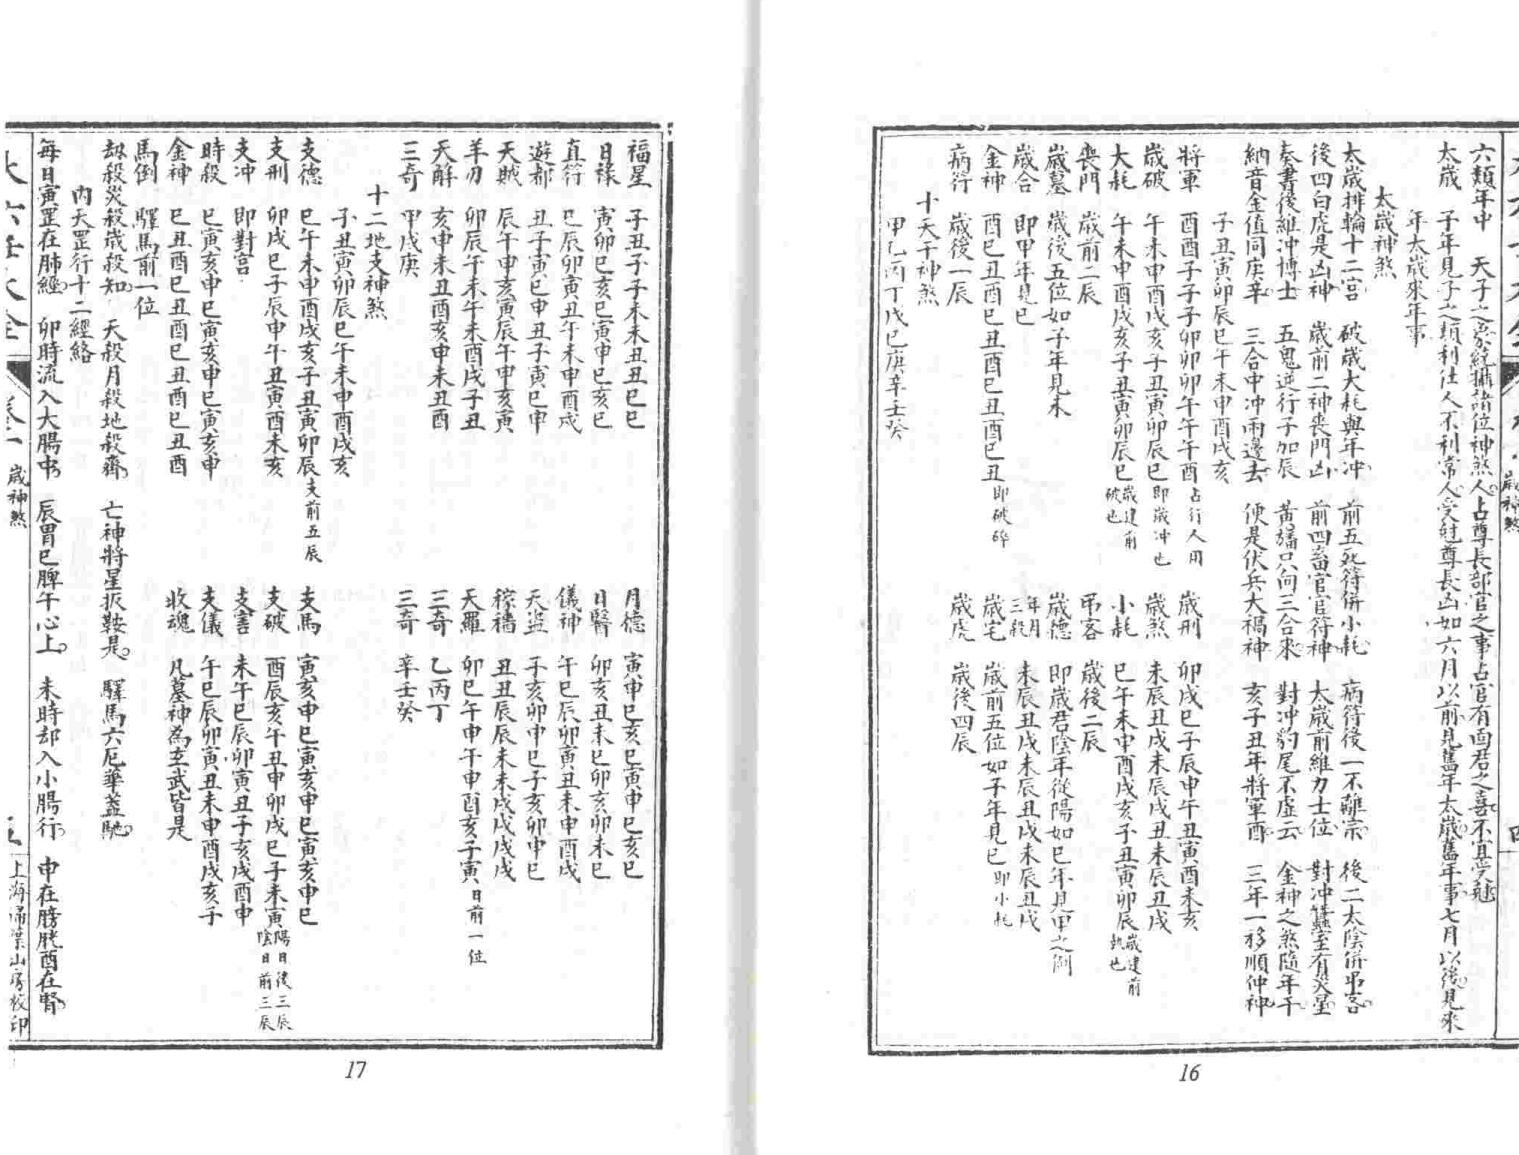 歲神煞
六類年中　天子之象統攝諸位神煞人占尊長部官之事占官有面君之喜不宜受魅
太歲　子年見子之類利仕人不利常人受魅尊長凶如六月以前見舊年太歲舊年事七月以後見來
年太歲來年事
太歲神煞
太歲排輪十二宮　破歲大耗與年冲　前五死符併小耗　病符後一不離宗　後二太陰併弔客
後四白虎是凶神　歲前二神喪門凶　前四畜官官符神　太歲前維力士位　對冲蠶室有災星
奏書後維冲博士　五鬼逆行子加辰　黃旛只向三合來　對冲豹尾不虛云　金神之煞隨年干
納音金值同庚辛　三合中冲兩邊去　便是伏兵大禍神　亥子丑年將軍酉　三年一移順仲神
子丑寅卯辰巳午未申酉戌亥
將軍　酉酉子子子卯卯卯午午午酉占行人用　歲刑　卯戌巳子辰申午丑寅酉未亥
歲破　午未申酉戌亥子丑寅卯辰巳即歲冲也　歲煞　未辰丑戌未辰戌丑未辰丑戌
大耗　午未申酉戌亥子丑寅卯辰巳歲建前破也　小耗　巳午未申酉戌亥子丑寅卯辰歲建前執也
喪門　歲前二辰　弔客　歲後二辰
歲墓　歲後五位如子年見未　歲德　即歲君陰年從陽如巳年見甲之例
歲合　即甲年見巳　年月三殺　未辰丑戌未辰丑戌未辰丑戌
金神　酉巳丑酉巳丑酉巳丑酉巳丑即破碎　歲宅　歲前五位如子年見巳即小耗
病符　歲後一辰　歲虎　歲後四辰
十天干神煞
甲乙丙丁戊巳庚辛壬癸
16
福星　子丑子子未未丑丑巳巳　月德　寅申巳亥巳寅申巳亥巳
日祿　寅卯巳亥巳寅申巳亥巳　日醫　卯亥丑未巳卯亥卯未巳
直行　巳辰卯寅丑午未申酉戌　儀神　午巳辰卯寅丑未申酉戌
遊都　丑子寅巳申丑子寅巳申　天盜　子亥卯申巳子亥卯申巳
天賊　辰午申亥寅辰午申亥寅　稼穡　丑丑辰辰未未戌戌戌戌
羊刃　卯辰午未午未酉戌子丑　天羅　卯巳午申午申酉亥子寅日前一位
天解　亥申未丑酉亥申未丑酉　三奇　乙丙丁
三奇　甲戊庚　三奇　辛壬癸
十二地支神煞
子丑寅卯辰巳午未申酉戌亥
支德　巳午未申酉戌亥子丑寅卯辰支前五辰　支馬　寅亥申巳寅亥申巳寅亥申巳
支刑　卯戌巳子辰申午丑寅酉未亥　支破　酉辰亥午丑申卯戌巳子未寅陽日後三辰陰日前三辰
支冲　即對宮　支害　未午巳辰卯寅丑子亥戌酉申
時殺　巳寅亥申巳寅亥申巳寅亥申　支儀　午巳辰卯寅丑未申酉戌亥子
金神　巳丑酉巳丑酉巳丑酉巳丑酉　收魂　凡墓神為玄武皆是
馬倒　驛馬前一位
劫殺災殺歲殺知　天殺月殺地殺齋　亡神將星扳鞍是　驛馬六厄華蓋馳
內天罡行十二經絡
每日寅罡在肺經　卯時流入大腸中　辰胃巳脾午心上　未時却入小腸行　申在膀胱酉在腎
大六壬大全
歲神煞
上海掃葉山房校印
17